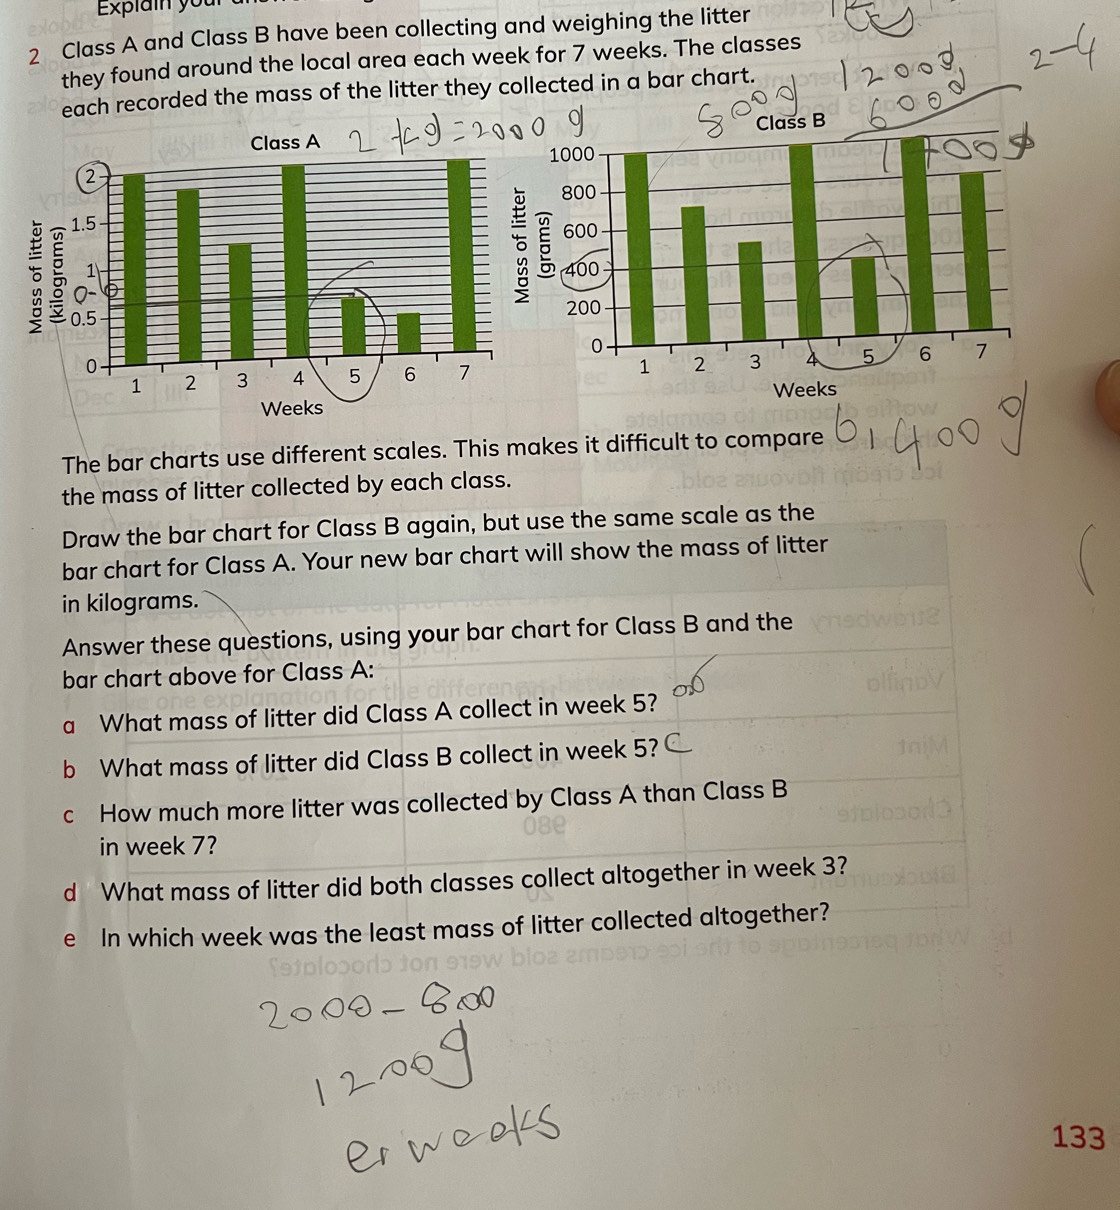 Explain your
2 Class A and Class B have been collecting and weighing the litter
they found around the local area each week for 7 weeks. The classes
each recorded the mass of the litter they collected in a bar chart.
2-4
1200g
600g
800g
Class A
2 kg = 2000 g
Class B
Mass of litter
(kilograms)
2
1.5
1
0.5
0
1 2 3 4 5 6 7
Weeks
Mass of litter
(grams)
1000
800
600
400
200
0
1 2 3 4 5 6 7
Weeks
The bar charts use different scales. This makes it difficult to compare
the mass of litter collected by each class.
400 g
Draw the bar chart for Class B again, but use the same scale as the
bar chart for Class A. Your new bar chart will show the mass of litter
in kilograms.
Answer these questions, using your bar chart for Class B and the
bar chart above for Class A:
a What mass of litter did Class A collect in week 5?
b What mass of litter did Class B collect in week 5?
c How much more litter was collected by Class A than Class B
in week 7?
d What mass of litter did both classes collect altogether in week 3?
e In which week was the least mass of litter collected altogether?
2000 - 800
1200g
weeks
133